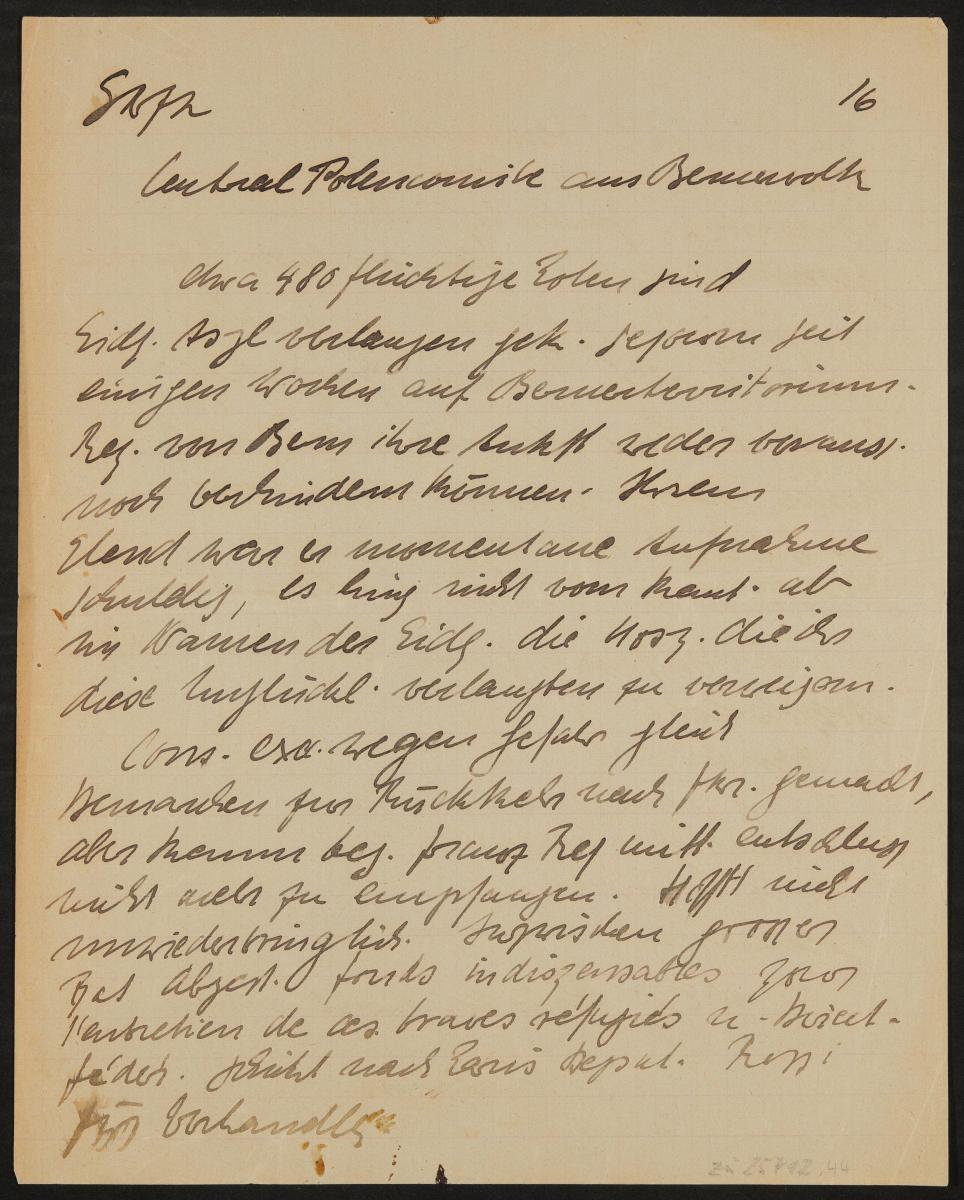 16
Central Polencomité ans Bernervolk
etwa 480 flüchtige Polen sind
Eidg. Asyl verlangen gek. gestern seit
einigen Wochen auf Bernerterritorium.
Reg. von Bern ihre Ankft weder vorauss.
noch verhindern können. Ihrem
Elend war er momentane Aufnahme
schuldig, es hing nicht vom Kant. ab
im Namen der Eidg. die Hosp. die ihr
diese Unglückl. verlangten zu verweigern.
Cons. exe. wegen Gefahr gleich
Demarchen zur Rückkehr nach Fkr. gemacht,
aber kaum beg. franz Reg mitt. entschluss
nicht mehr zu empfangen. Hofft nicht
unwiederbringlich. Inzwischen grosser
Rat Abgest. fonds indispensables pour
l'entretien de ces braves réfugiés u. Direct.
féder. schickt nach Paris Deput. Rossi
für Verhandlg
zu 25792.44